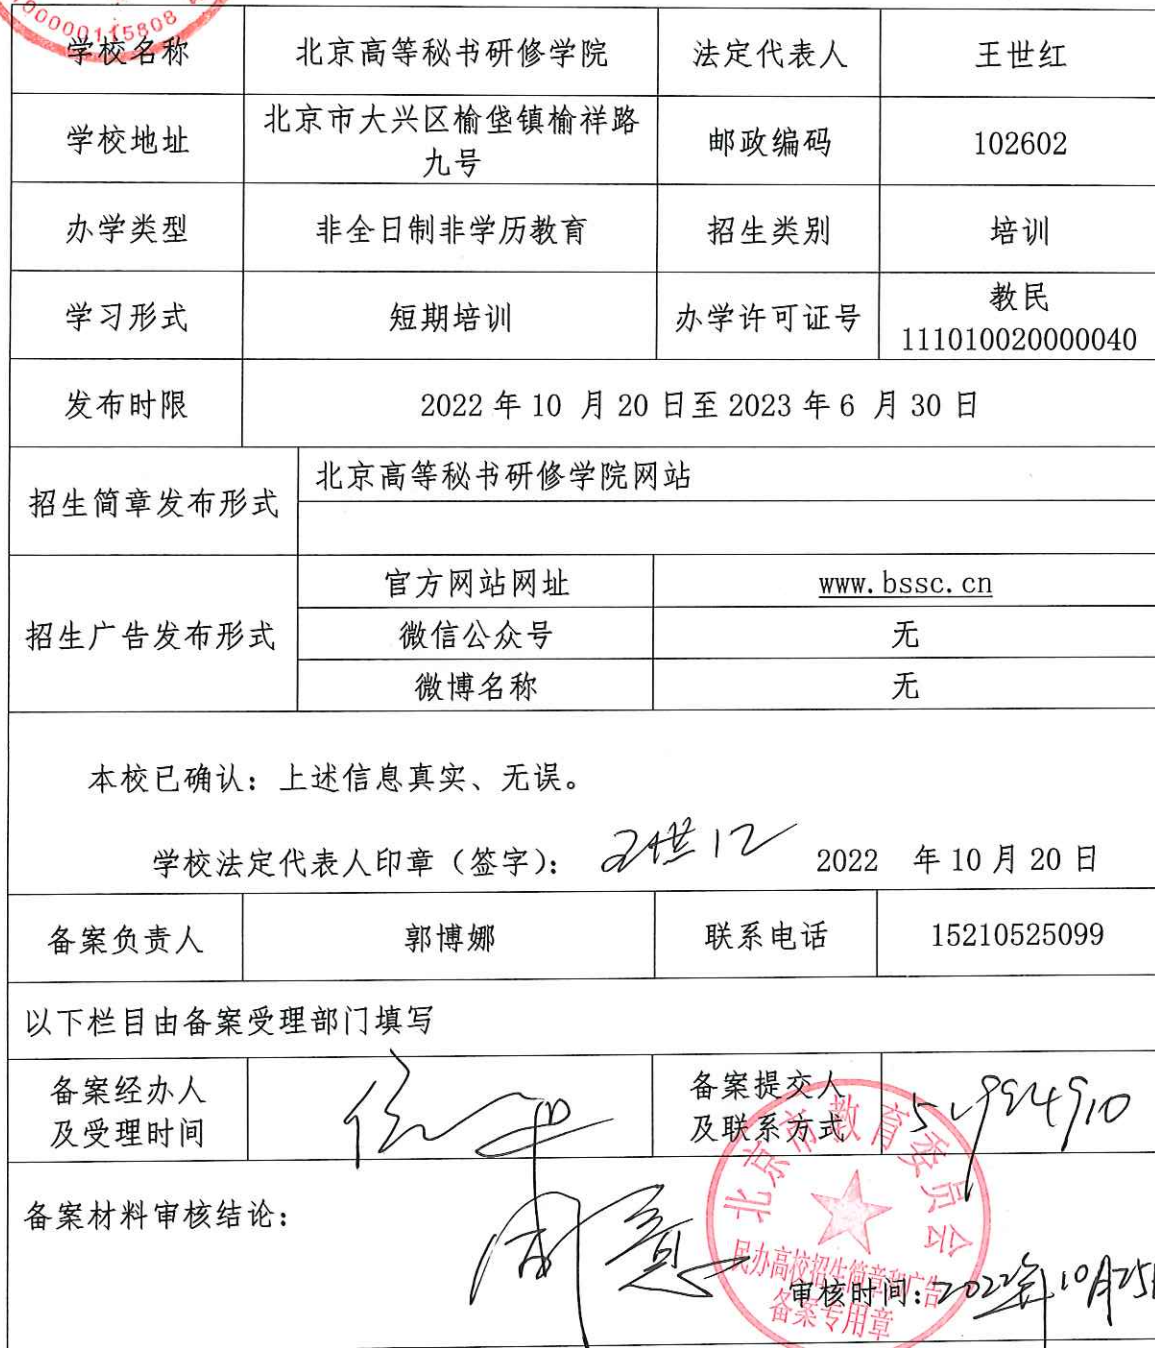 00000115808
学校名称 北京高等秘书研修学院 法定代表人 王世红
学校地址 北京市大兴区榆垡镇榆祥路
九号 邮政编码 102602
办学类型 非全日制非学历教育 招生类别 培训
学习形式 短期培训 办学许可证号 教民
111010020000040
发布时限 2022 年 10 月 20 日至 2023 年 6 月 30 日
招生简章发布形式 北京高等秘书研修学院网站
招生广告发布形式 官方网站网址 www.bssc.cn
微信公众号 无
微博名称 无
本校已确认：上述信息真实、无误。
学校法定代表人印章（签字）： 王世红 2022 年 10 月 20 日
备案负责人 郭博娜 联系电话 15210525099
以下栏目由备案受理部门填写
备案经办人
及受理时间
备案提交人
及联系方式
备案材料审核结论：
同意
北京市教育委员会
民办高校招生简章和广告
备案专用章
审核时间：2022年10月25日